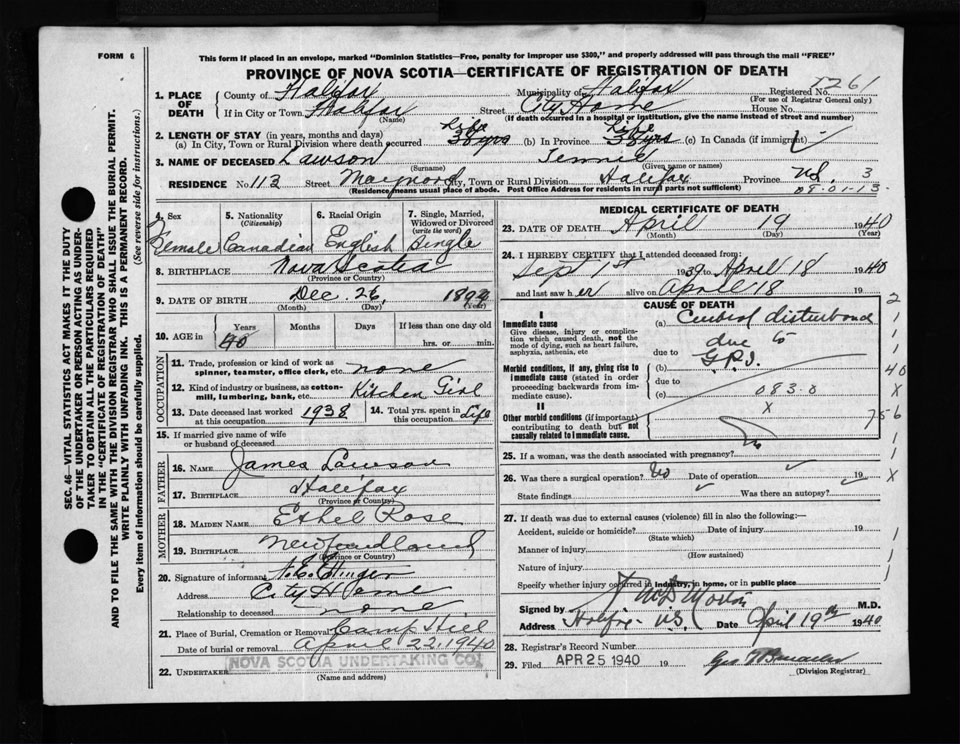 FORM 6
This form if placed in an envelope, marked "Dominion Statistics—Free, penalty for improper use $300," and properly addressed will pass through the mail "FREE"
PROVINCE OF NOVA SCOTIA—CERTIFICATE OF REGISTRATION OF DEATH
1261
1. PLACE OF DEATH County of Halifax Municipality of Halifax Registered No. (For use of Registrar General only)
If in City or Town Halifax (Name) Street City Home House No.
(If death occurred in a hospital or institution, give the name instead of street and number)
2. LENGTH OF STAY (in years, months and days)
(a) In City, Town or Rural Division where death occurred Life 38 yrs (b) In Province Life 38 yrs (c) In Canada (if immigrant) -
3. NAME OF DECEASED Lawson (Surname) Jennie (Given name or names)
RESIDENCE No 113 Street Maynard City, Town or Rural Division Halifax Province NS. 3
(Residence means usual place of abode. Post Office Address for residents in rural parts not sufficient) 09-01-13.
SEC. 46—VITAL STATISTICS ACT MAKES IT THE DUTY
OF THE UNDERTAKER OR PERSON ACTING AS UNDER-
TAKER TO OBTAIN ALL THE PARTICULARS REQUIRED
IN THE "CERTIFICATE OF REGISTRATION OF DEATH"
AND TO FILE THE SAME WITH THE DIVISION REGISTRAR WHO SHALL ISSUE THE BURIAL PERMIT.
WRITE PLAINLY WITH UNFADING INK. THIS IS A PERMANENT RECORD.
Every item of information should be carefully supplied. (See reverse side for instructions.)
4. Sex Female
5. Nationality (Citizenship) Canadian
6. Racial Origin English
7. Single, Married, Widowed or Divorced (write the word) Single
8. BIRTHPLACE Nova Scotia (Province or Country)
9. DATE OF BIRTH Dec. 26, 1899 (Month) (Day) (Year)
10. AGE in Years 40 Months Days If less than one day old hrs. or min.
OCCUPATION
11. Trade, profession or kind of work as spinner, teamster, office clerk, etc. none
12. Kind of industry or business, as cotton-mill, lumbering, bank, etc. Kitchen Girl
13. Date deceased last worked at this occupation 1938
14. Total yrs. spent in this occupation Life
15. If married give name of wife or husband of deceased
FATHER
16. NAME James Lawson
17. BIRTHPLACE Halifax (Province or Country)
MOTHER
18. MAIDEN NAME Ethel Rose
19. BIRTHPLACE Newfoundland (Province or Country)
20. Signature of informant
Address City Home
Relationship to deceased none
21. Place of Burial, Cremation or Removal Camp Hill
Date of burial or removal April 22, 1940
22. UNDERTAKER NOVA SCOTIA UNDERTAKING CO.
(Name and address)
MEDICAL CERTIFICATE OF DEATH
23. DATE OF DEATH April 19 1940 (Month) (Day) (Year)
24. I HEREBY CERTIFY that I attended deceased from:
Sept 1st 1939 to April 18 1940
and last saw her alive on April 18 19
CAUSE OF DEATH
I
Immediate cause
Give disease, injury or complication which caused death, not the mode of dying, such as heart failure, asphyxia, asthenia, etc
(a) Cerebral disturbance
due to
due to
Morbid conditions, if any, giving rise to immediate cause (stated in order proceeding backwards from immediate cause).
(b) G.P.I.
due to
(c) 083.0
II
Other morbid conditions (if important) contributing to death but not causally related to immediate cause.
X
2
1
1
1
40
X
756
25. If a woman, was the death associated with pregnancy? No
26. Was there a surgical operation? No Date of operation 19
State findings Was there an autopsy?
27. If death was due to external causes (violence) fill in also the following:—
Accident, suicide or homicide? (State which) Date of injury 19
Manner of injury (How sustained)
Nature of injury
Specify whether injury occurred in industry, in home, or in public place
Signed by Morton M.D.
Address Halifax N.S. Date April 19th 1940
28. Registrar's Record Number
29. Filed APR 25 1940 19
(Division Registrar)